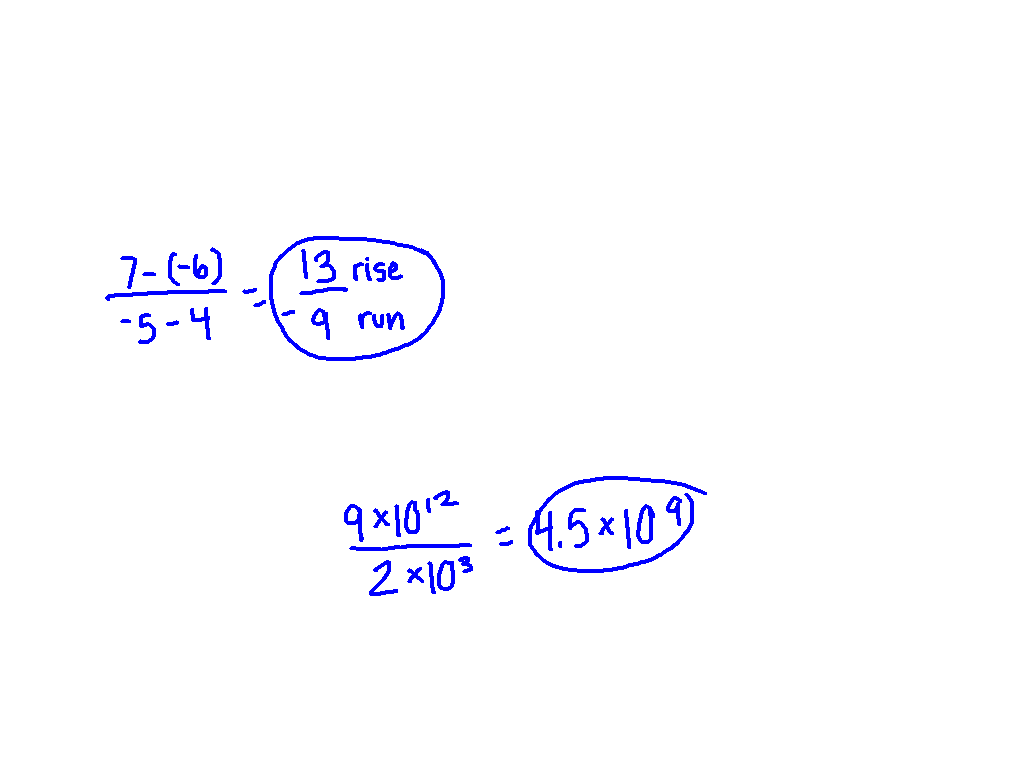 7-(-6) / -5-4 = 13 rise / -9 run
9×10¹² / 2×10³ = 4.5×10⁹